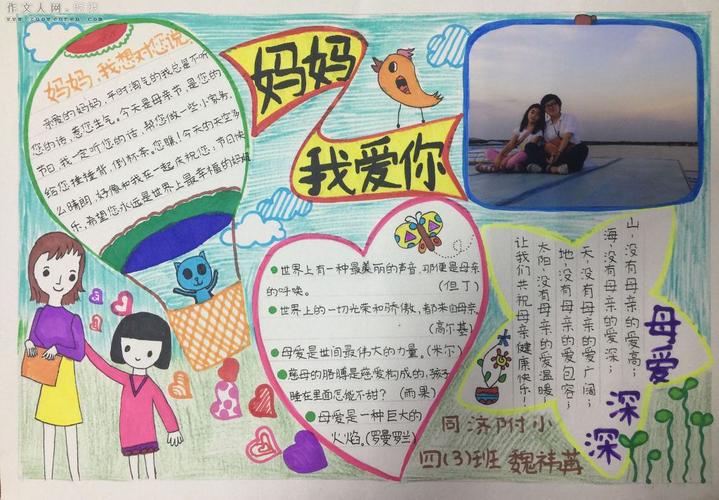 作文人网
妈妈,我想对您说
亲爱的妈妈,平时淘气的我总是不听
您的话,惹您生气。今天是母亲节,是您的
节日,我一定听您的话,帮您做一些小家务,
给您捶捶背,倒杯茶。您瞧!今天的天空多
么晴朗,好像和我在一起庆祝您:节日快
乐,希望您永远是世界上最幸福的妈妈
妈妈
我爱你
世界上有一种最美丽的声音,那便是母亲
的呼唤。(但丁)
世界上的一切光荣和骄傲,都来自母亲。
(高尔基)
母爱是世间最伟大的力量。(米尔)
慈母的胳膊是慈爱构成的,孩子
睡在里面怎能不甜?(雨果)
母爱是一种巨大的
火焰。(罗曼罗兰)
母爱深深
山,没有母亲的爱高;
海,没有母亲的爱深;
天,没有母亲的爱广阔;
地,没有母亲的爱包容;
太阳,没有母亲的爱温暖
让我们共祝母亲健康快乐!
同济附小
四(3)班 魏祎